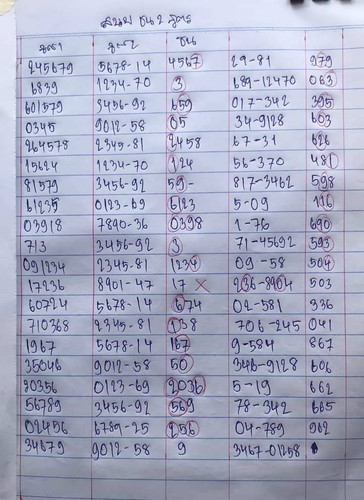 สนาม ชน 2 สูตร
สูตร1 สูตร2 ชน
245679 5678-14 4567 29-81 979
6839 1234-70 3 689-12470 063
601579 3456-92 659 017-342 395
0345 9012-58 05 34-9128 603
264578 2345-81 2458 67-31 626
15624 1234-70 124 56-370 481
81579 3456-92 59- 817-3462 598
61235 0123-69 6123 5-09 116
03918 7890-36 0398 1-76 690
713 3456-92 3 71-45692 593
091234 2345-81 1234 09-58 504
17236 8901-47 17 × 236-8904 503
60724 5678-14 674 02-581 936
710368 2345-81 138 706-245 041
1967 5678-14 167 9-584 867
35046 9012-58 50 346-9128 606
20356 0123-69 2036 5-19 662
56789 3456-92 569 78-342 665
02456 6789-25 256 04-789 962
34679 9012-58 9 3467-01258